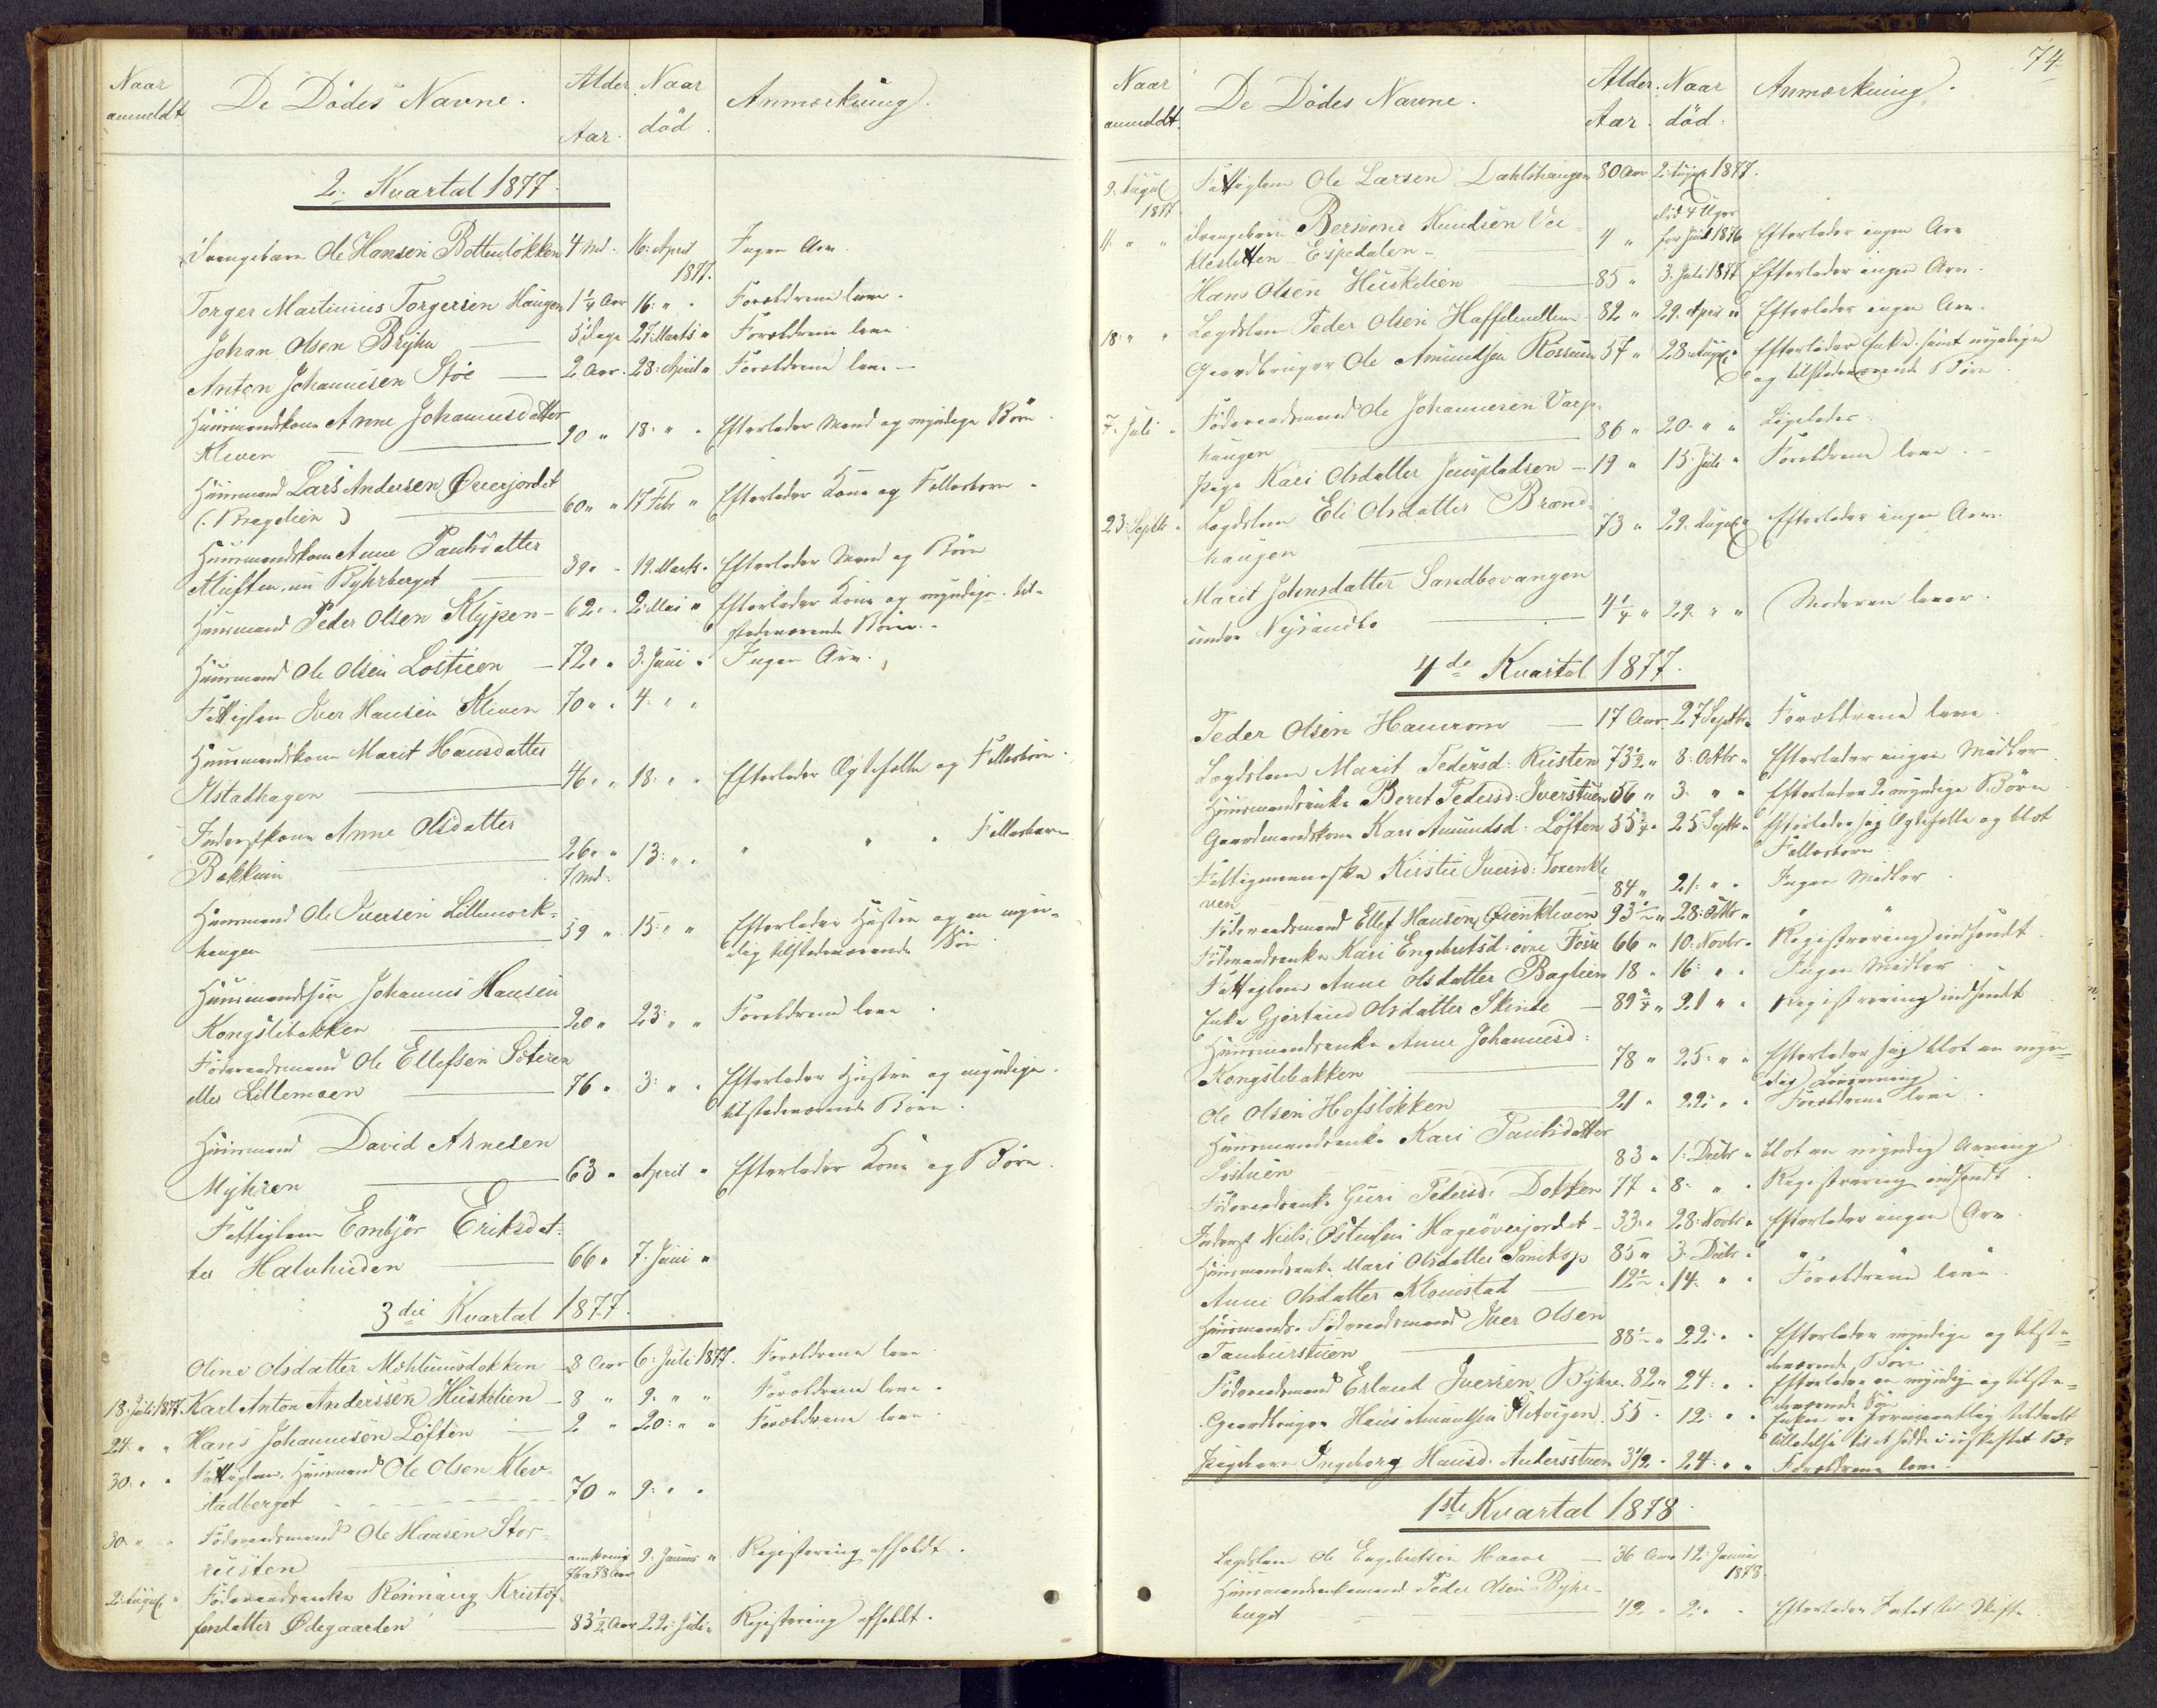 Naar anmeldt De Dödes Navne. Alder Aar. Naar död. Anmærkning.
2. Kvartal 1877.
Drengebarn Ole Hansen Bottenlökken 4 Md. 16: April 1877. Ingen Arv.
Torger Martinius Torgersen Haugen 1 1/4 Aar 16: " " Forældrene leve.
Johan Olsen Bryhn 5 Dage 27 Marts " Forældrene leve
Anton Johannesen Stöe 2 Aar. 28: April " Forældrene leve
Huusmandskone Anne Johannesdatter
Kleven 90 " 18: " " Efterlader Mand og myndige Börn
Huusmand Lars Andersen Överjordet
60 " " 17 Febr " Efterlader Kone og Fællesbörn
Huusmandskone Anne Paulsdatter
Kluften, nu Byhrberget 39 " " 19. Marts " Efterlader Mand og Börn
Huusmand Peder Olsen Klypen 62 " " 2. Mai " Efterlader Kone og myndige til-
stedeværende Börn.
Huusmand Ole Olsen Löstuen 72 " " 3. Juni " Ingen Arv.
Fattiglem Iver Hansen Kleven 70 " " 4. " "
Huusmandskone Marit Hansdatter
Ilstadhagen 46 " " 18: " " Efterlader Ægtefælle og Fællesbörn
Inderstkone Anne Olsdatter
Bakkum 26 " " 7 Md. 13: " " " " " Fællesbarn
Huusmand Ole Iversen Lillemork-
haugen 59 " 15: " " Efterlader Hustru og en myn-
dig tilstedeværende Sön
Huusmandssön Johannes Hansen
Kongslibakken 20 " 23: " " Forældrene leve
Föderaadsmand Ole Ellefsen Sæteren
eller Lillemoen 76 " 3: " " Efterlader Hustru og myndige
tilstedeværende Börn.
Huusmand David Arnesen
Myhren 63 " April " Efterlader Kone og Börn.
Fattiglem Embjör Eriksdat-
ter Halvhuden 66 " 7. Juni "
3die Kvartal 1877.
Oline Olsdatter Mæhlumsdokken 8 Aar 6: Juli 1877. Forældrene leve
18. Juli 1877 Karl Anton Anderssen Huskelien 8 " 9. " " Forældrene leve
24. " " Hans Johannesen Löften 2 " 20: " " Forældrene leve
30. " " Fattiglem, Huusmand Ole Olsen Klev-
stadberget 70 " 9: " "
30. " " Föderaadsmand Ole Hansen Stor-
rusten omkring 76 a 78 Aar 9. Januar " Registrering afholdt.
2. August " Föderaadsenke Rönnaug Kristof-
fersdatter Ödegaarden 83 1/2 Aar 22: Juli " Registrering afholdt.
74
Naar anmeldt. De Dödes Navne. Alder. Aar. Naar död. Anmærkning.
9. August 1877 Fattiglem Ole Larsen Dahlshaugen 80 Aar 2. August 1877.
11. " " Drengebarn Bersvend Knudsen Ves-
lesletten Espedalen 4 " död 4 Uger för Juul 1876 Efterlader ingen Arv
Hans Olsen Huskelien 85 " 3. Juli 1877 Efterlader ingen Arv.
18. " " Lægdslem Peder Olsen 82 " 29. April " Efterlader ingen Arv.
Gaardbruger Ole Amundsen Rossum 57 " 28 August " Efterlader Enke samt myndige
og tilstedeværende Börn
7. Juli " Föderaadsmand Ole Johannesen Varp-
haugen 86 " 20: " " Ligeledes
Pige Kari Olsdatter Jenspladsen 19 " 15. Juli " Forældrene leve.
23. Septbr " Lægdslem Eli Olsdatter Brænd-
haugen 73 " 29. August " Efterlader ingen Arv.
Marit Johnsdatter Sandbovangen
under Nysandbo 4 1/4 " 29. " " Moderen lever.
4de Kvartal 1877.
Peder Olsen Haverom 17 Aar. 27 Septbr " Forældrene leve.
Lægdslem Marit Pedersd: Rusten 73 1/2 " 8. Octbr " Efterlader ingen Midler
Huusmandsenke Beret Pedersd: Iverstuen 56 " 3. " " Efterlader 2 myndige Börn
Gaardmandskone Kari Amundsd: Löften 55 3/4 " 25 Septbr " Efterlader sig Ægtefælle og blot
Fællesbörn.
Fattigmenneske Kirsti Iversd: Torenkle
ven 84 " 21: " " Ingen Midler
Föderaadsmand Ellef Hansen Övenkleven 93 1/2 " 28: Octbr " " "
Föderaadsenke Kari Engebretsd: övre Fosse 66 " 10: Novbr " Registrering indsendt
Fattiglem Anne Olsdatter Baglien 18 " 16: " " Ingen Midler
Enke Gjertrud Olsdatter Skinde 89 3/4 " 21 " " Registrering indsendt
Huusmandsenke Anne Johannesd:
Kongslibakken 78 " 25: " " Efterlader sig blot en myn-
dig Livsarving
Ole Olsen Hofslökken 21 " 22: " " Forældrene leve
Huusmandsenke Kari Paulsdatter
Löstuen 83 " 1. Decbr " blot en myndig Arving
Föderaadsenke Guri Pedersd: Dokken 77 " 8: " " Registrering indsendt
Inderst Niels Östensen Hageöverjordet 33 " " 28: Novbr " Efterlader ingen Arv
Huusmandsenke Mari Olsdatter 85 " 3. Decbr " " " "
Anne Olsdatter Klomstad 12 1/2 " 14. " " Forældrene leve
Huusmands- Föderaadsmand Iver Olsen
Tamburstuen 88 1/2 " 22: " " Efterlader myndige og tilste-
deværende Börn
Föderaadsmand Erland Iversen Byhre 82 " 24: " " Efterlader en myndig og tilste-
deværende Sön
Gaardbruger Hans Amundsen 55 " 12: " " Enken er formeentlig tilstaaet
Tilladelse til at sidde i uskiftet Bo
Pigebarn Ingeborg Hansd. Andersstuen 3 1/2 " 24: " " Forældrene leve.
1ste Kvartal 1878.
Lægdslem Ole Engebretsen Haave 36 Aar 12. Januar 1878.
Huusmandsenkemand Peder Olsen Byhr-
berget 42 " 2: " " Efterlader Intet til Skifte